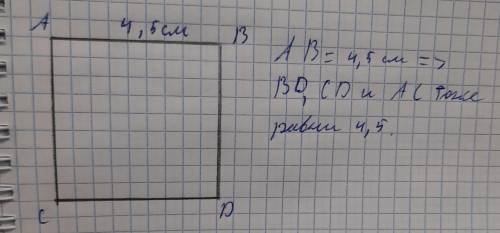 A 4,5см B
AB = 4,5 см =>
BD, CD и AC тоже
равны 4,5.
C D